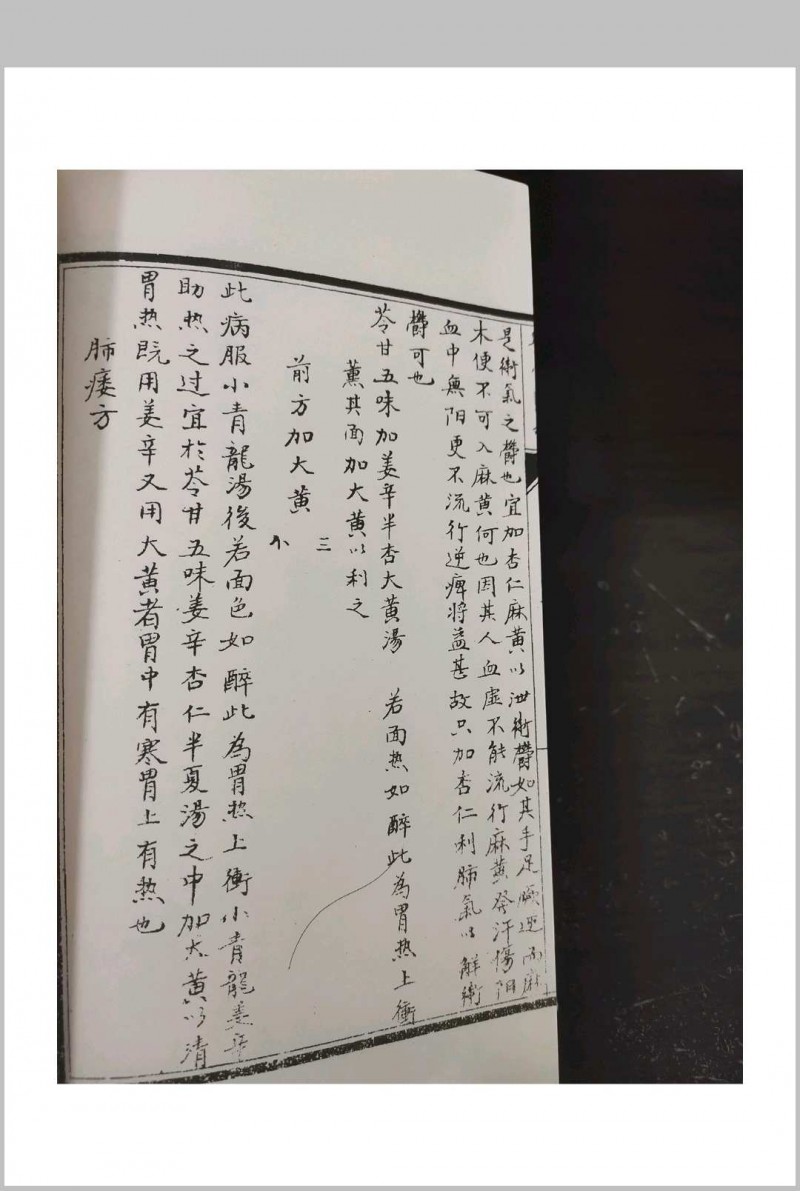 是衛氣之欝也宜加杏仁麻黄以泄衛欝如其手足厥逆而麻
木便不可入麻黄何也因其人血虚不能流行麻黄發汗傷阳
血中無阳更不流行逆痺将益甚故只加杏仁利肺氣以解衛
欝可也
苓甘五味加姜辛半杏大黄湯 若面热如醉此為胃热上衝
薰其面加大黄以利之
三
前方加大黄
此病服小青龍湯後若面色如醉此為胃热上衝小青龍姜辛
助热之过宜於苓甘五味姜辛杏仁半夏湯之中加大黄以清
胃热既用姜辛又用大黄者胃中有寒胃上有热也
肺痿方